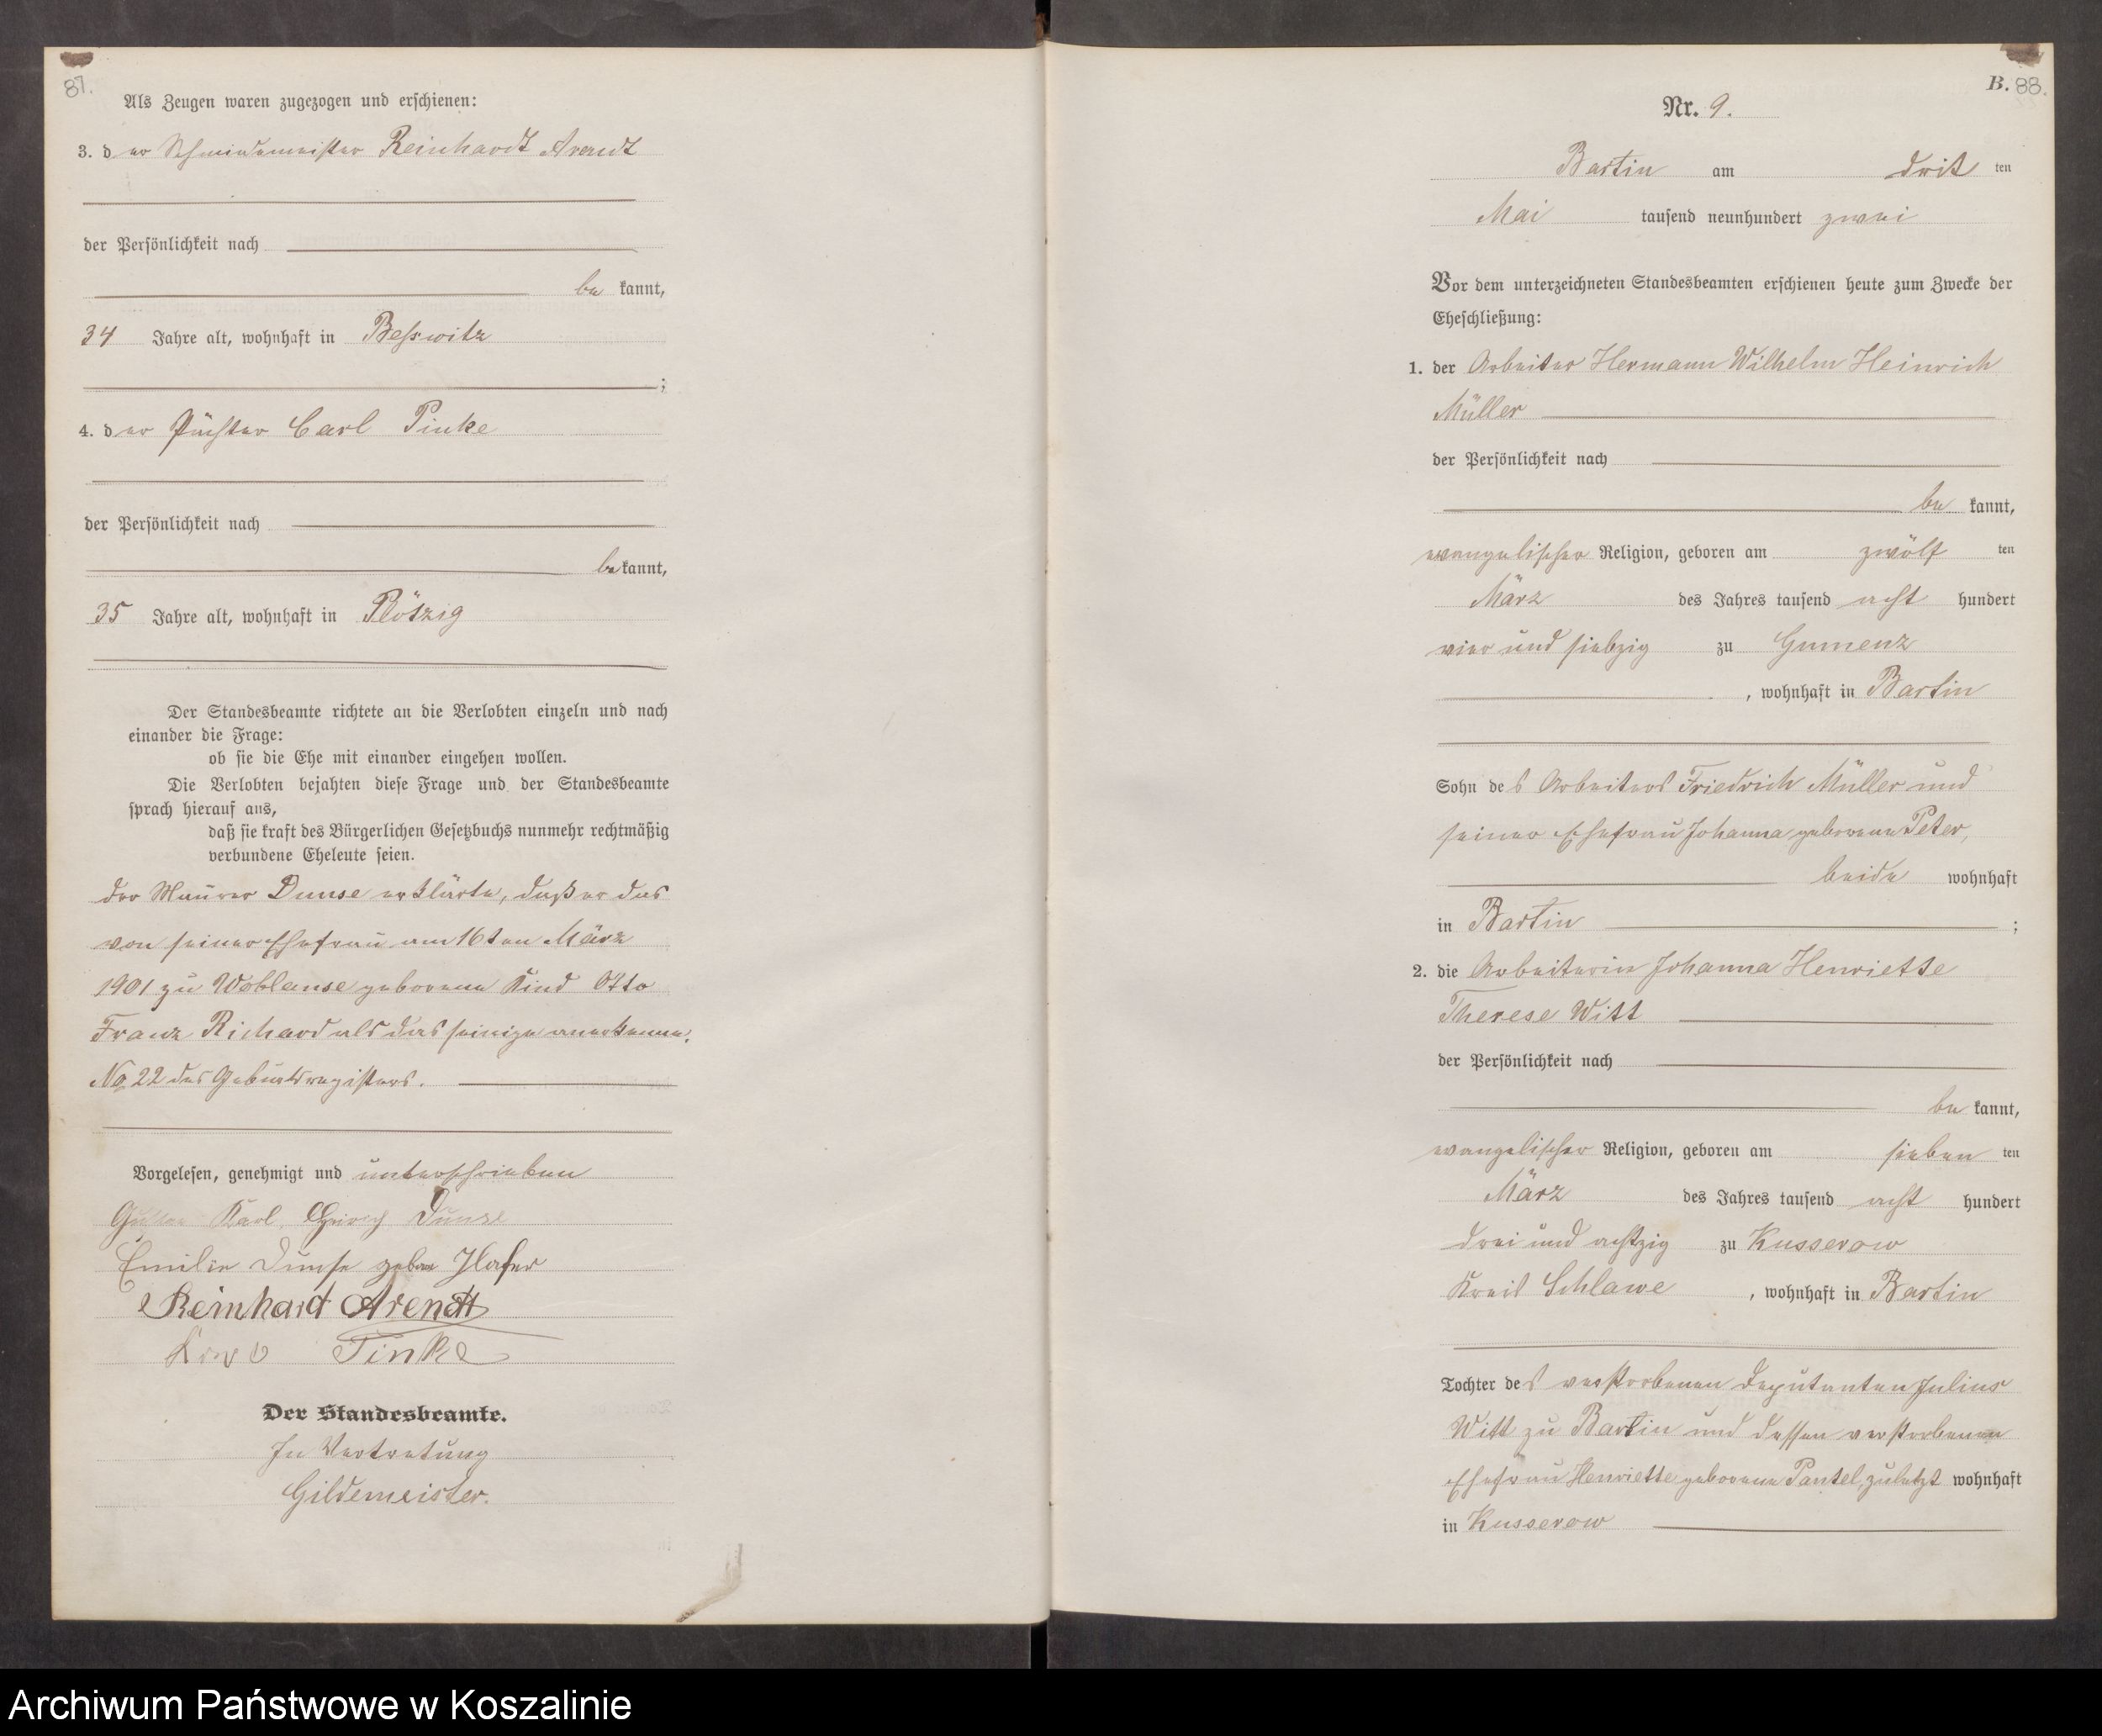 87.
Als Zeugen waren zugezogen und erschienen:
3. der Schmiedemeister Reinhardt Arendt
der Persönlichkeit nach
bekannt,
34 Jahre alt, wohnhaft in Besswitz
;
4. der Pächter Carl Pinke
der Persönlichkeit nach
bekannt,
35 Jahre alt, wohnhaft in Plötzig
Der Standesbeamte richtete an die Verlobten einzeln und nach
einander die Frage:
ob sie die Ehe mit einander eingehen wollen.
Die Verlobten bejahten diese Frage und der Standesbeamte
sprach hierauf aus,
daß sie kraft des Bürgerlichen Gesetzbuchs nunmehr rechtmäßig
verbundene Eheleute seien.
Der Maurer Dunse erklärte, daß er das
von seiner Ehefrau am 16ten März
1901 zu Woblanse geborene Kind Otto
Franz Richard als das seinige anerkenne.
No 22 des Geburtsregisters.
Vorgelesen, genehmigt und unterschrieben
Karl Dunse
Emilie Dunse Hafer
Reinhard Arendt
Pinke
Der Standesbeamte.
In Vertretung
Gildemeister.
B. 88.
Nr. 9.
Bartin am dritten
Mai tausend neunhundert zwei
Vor dem unterzeichneten Standesbeamten erschienen heute zum Zwecke der
Eheschließung:
1. der Arbeiter Hermann Wilhelm Heinrich
Müller
der Persönlichkeit nach
bekannt,
evangelischer Religion, geboren am zwölften
März des Jahres tausend acht hundert
vier und siebzig zu Gumenz
, wohnhaft in Bartin
Sohn des Arbeiters Friedrich Müller und
seiner Ehefrau Johanna geborene Peter,
beide wohnhaft
in Bartin ;
2. die Arbeiterin Johanna Henriette
Therese Witt
der Persönlichkeit nach
bekannt,
evangelischer Religion, geboren am siebenten
März des Jahres tausend acht hundert
drei und achtzig zu Kusserow
Kreis Schlawe , wohnhaft in Bartin
Tochter des verstorbenen Deputanten Julius
Witt zu Bartin und dessen verstorbenen
Ehefrau Henriette geborene Pantel, zuletzt wohnhaft
in Kusserow
Archiwum Państwowe w Koszalinie